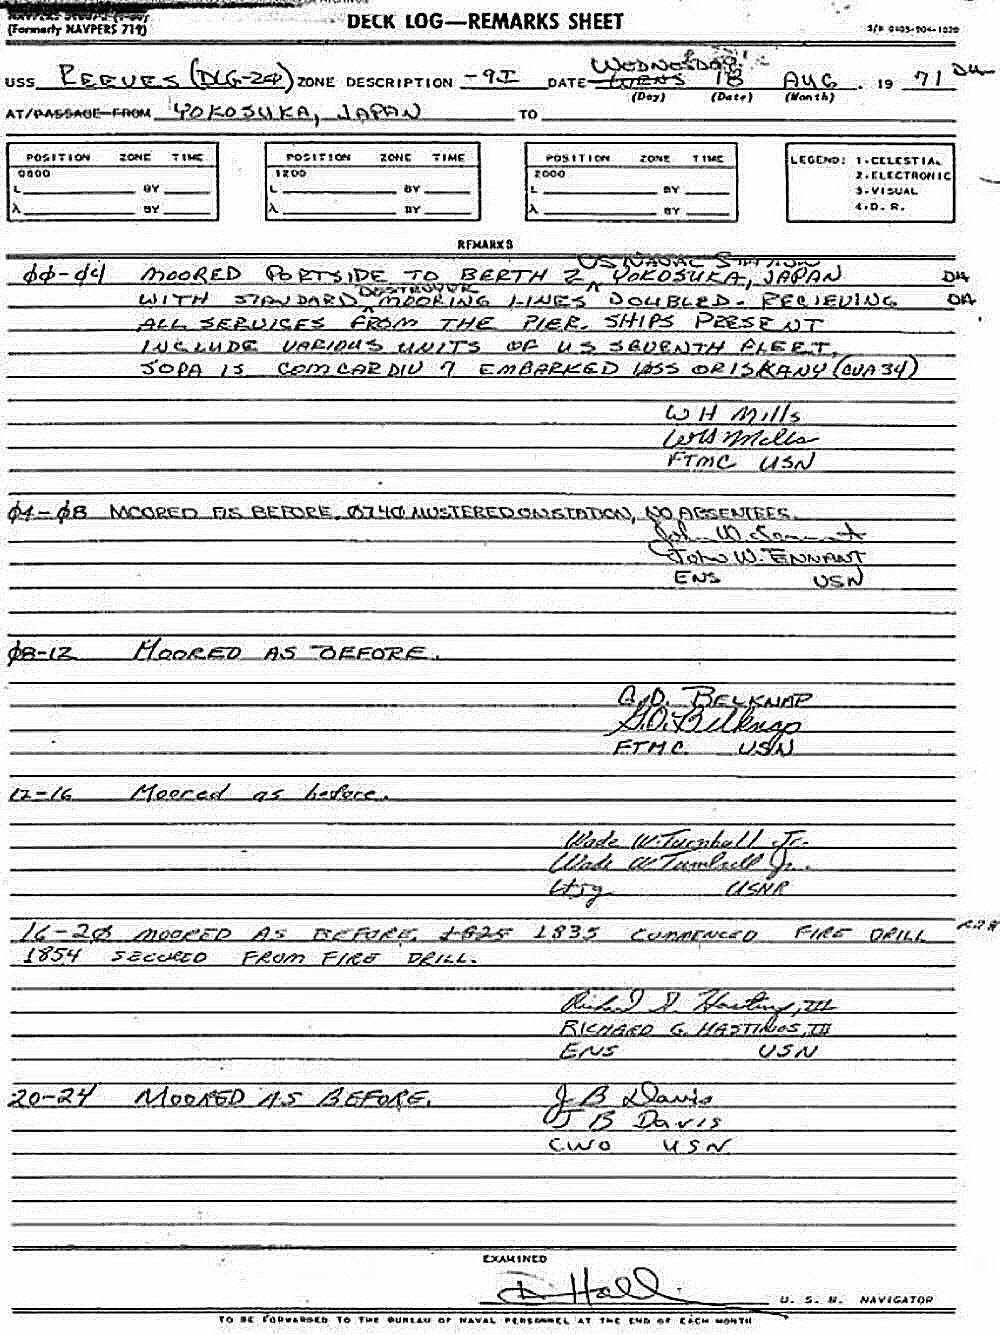 (Formerly NAVPERS 719)
DECK LOG—REMARKS SHEET
S/N 0105-904-1020
WEDNESDAY
USS REEVES (DLG-24) ZONE DESCRIPTION -9I DATE 18 AUG . 19 71
(Day) (Date) (Month)
AT/PASSAGE FROM YOKOSUKA, JAPAN TO
POSITION ZONE TIME
0800
L BY
λ BY
POSITION ZONE TIME
1200
L BY
λ BY
POSITION ZONE TIME
2000
L BY
λ BY
LEGEND: 1-CELESTIAL
2-ELECTRONIC
3-VISUAL
4-D. R.
REMARKS
US NAVAL STATION
00-04 MOORED PORTSIDE TO BERTH 2 YOKOSUKA, JAPAN
DESTROYER
WITH STANDARD MOORING LINES DOUBLED. RECIEVING
ALL SERVICES FROM THE PIER. SHIPS PRESENT
INCLUDE VARIOUS UNITS OF US SEVENTH FLEET.
SOPA IS COMCARDIV 7 EMBARKED USS ORISKANY (CVA 34)
W H Mills
WH Mills
FTMC USN
04-08 MOORED AS BEFORE. 0740 MUSTERED ON STATION, NO ABSENTEES.
John W. Tennant
JOHN W. TENNANT
ENS USN
08-12 MOORED AS BEFORE.
G.D. BELKNAP
G.D. Belknap
FTMC USN
12-16 Moored as before.
Wade W. Turnbull Jr.
Wade W Turnbull Jr.
Ltjg USNR
16-20 MOORED AS BEFORE. 1825 1835 COMMENCED FIRE DRILL
1854 SECURED FROM FIRE DRILL.
Richard G. Hastings, III
RICHARD G. HASTINGS, III
ENS USN
20-24 MOORED AS BEFORE.
J B Davis
J B Davis
CWO USN
EXAMINED
D Hall
U. S. N. NAVIGATOR
TO BE FORWARDED TO THE BUREAU OF NAVAL PERSONNEL AT THE END OF EACH MONTH